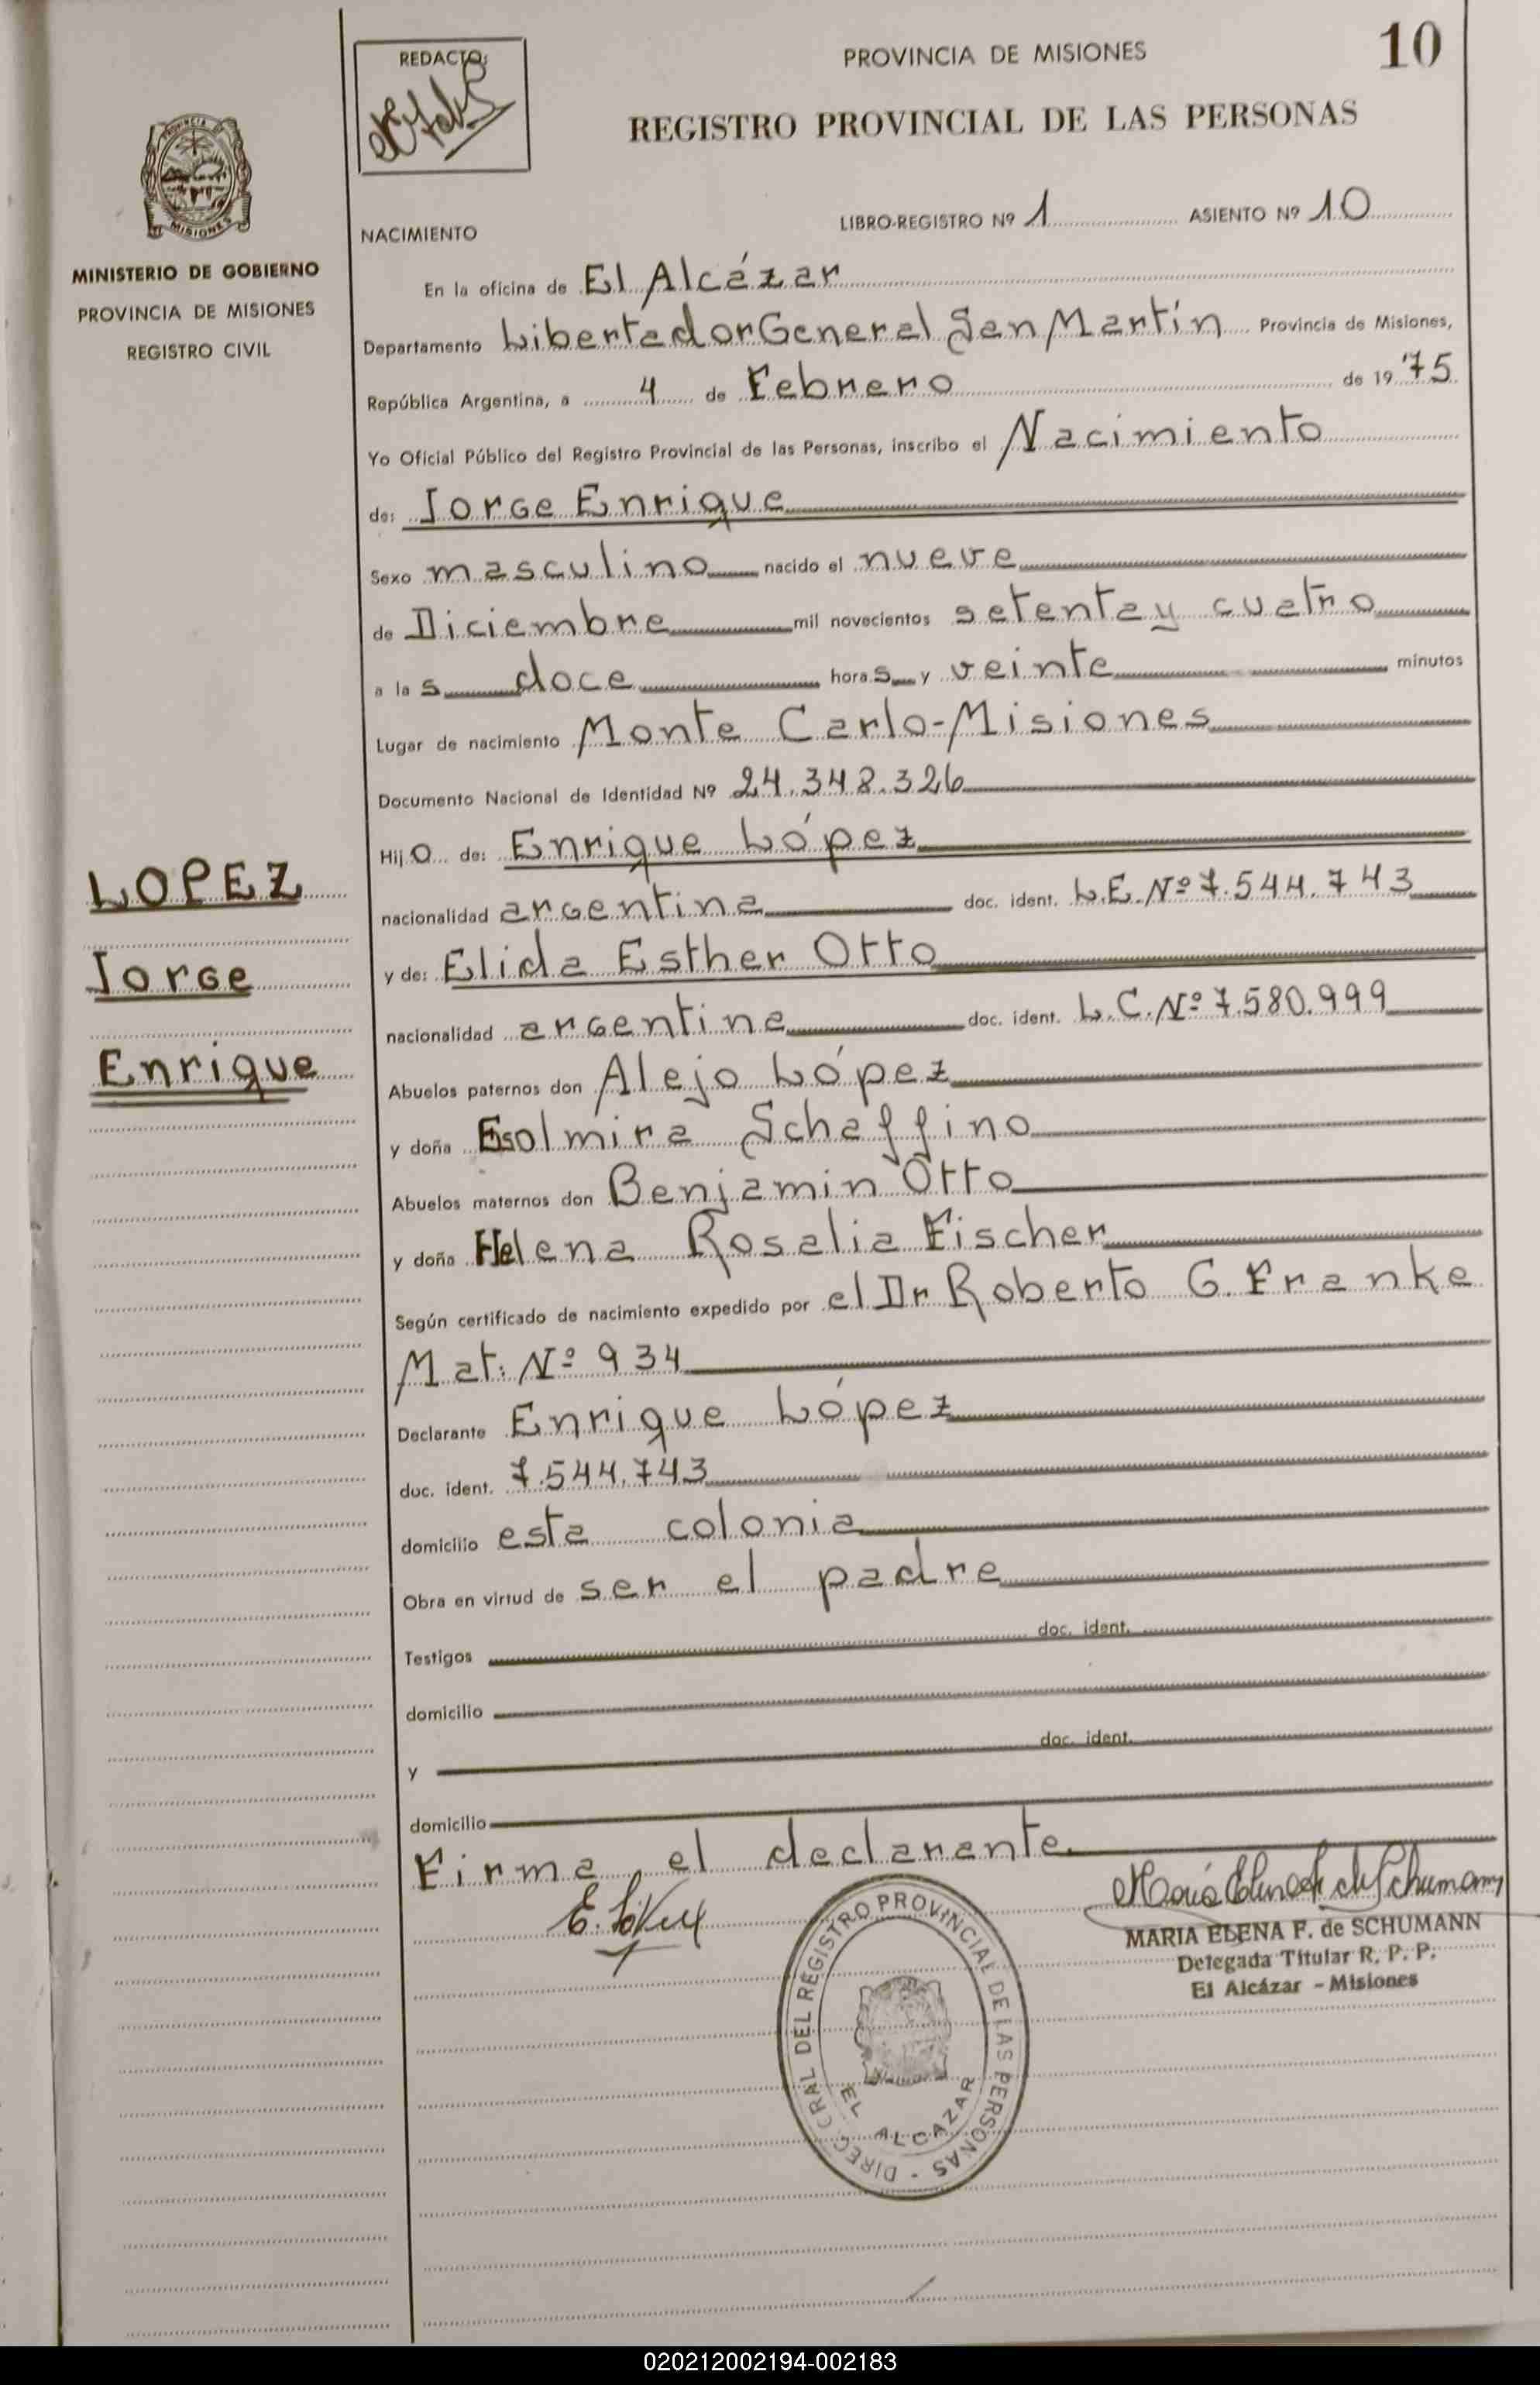 REDACTO:
PROVINCIA DE MISIONES
10
REGISTRO PROVINCIAL DE LAS PERSONAS
PROVINCIA DE
MISIONES
MINISTERIO DE GOBIERNO
PROVINCIA DE MISIONES
REGISTRO CIVIL
NACIMIENTO
LIBRO-REGISTRO Nº 1 ASIENTO Nº 10
En la oficina de El Alcázar
Departamento Libertador General San Martín Provincia de Misiones,
República Argentina, a 4 de Febrero de 1975
Yo Oficial Público del Registro Provincial de las Personas, inscribo el Nacimiento
de: Jorge Enrique
Sexo masculino nacido el nueve
de Diciembre mil novecientos setenta y cuatro
a las doce horas y veinte minutos
Lugar de nacimiento Monte Carlo-Misiones
Documento Nacional de Identidad Nº 24.348.326
Hijo de: Enrique López
nacionalidad argentina doc. ident. L.E. Nº 7.544.743
y de: Elida Esther Otto
nacionalidad argentina doc. ident. L.C. Nº 7.580.999
Abuelos paternos don Alejo López
y doña Esolmira Schaffino
Abuelos maternos don Benjamin Otto
y doña Helena Rosalia Fischer
Según certificado de nacimiento expedido por el Dr Roberto G. Franke
Mat: Nº 934
Declarante Enrique López
doc. ident. 7.544.743
domicilio esta colonia
Obra en virtud de ser el padre
Testigos doc. ident.
domicilio
y doc. ident.
domicilio
Firma el declarante
LOPEZ
Jorge
Enrique
MARIA ELENA F. de SCHUMANN
Delegada Titular R. P. P.
El Alcázar - Misiones
DIREC. GRAL DEL REGISTRO PROVINCIAL DE LAS PERSONAS -
EL ALCAZAR
020212002194-002183